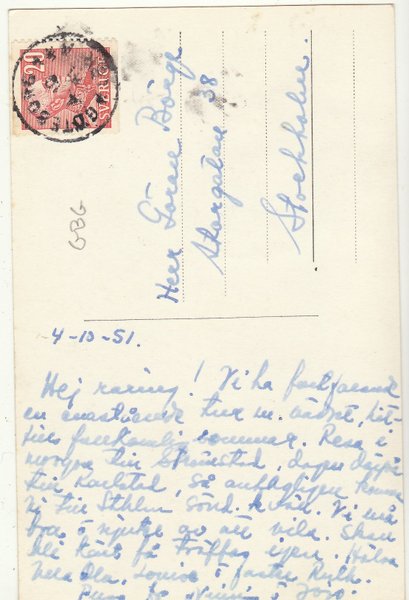 20
SVERIGE
GÖTEBORG
GBG
Herr Göran Börge
Storgatan 38
Stockholm.
4-10-51.
Hej raring! Vi ha fortfarande
en enastående tur m. vädret, hit-
tills fullkomlig sommar. Resa i
morgon till Strömstad, dagen därpå
till Karlstad, så antagligen komma
vi till Sthlm sönd. kväll. Vi må
bra o njuta av att vila. Skall
bli kärt få träffas igen. Hälsa
hela Ola, Louise o faster Ruth.
Puss